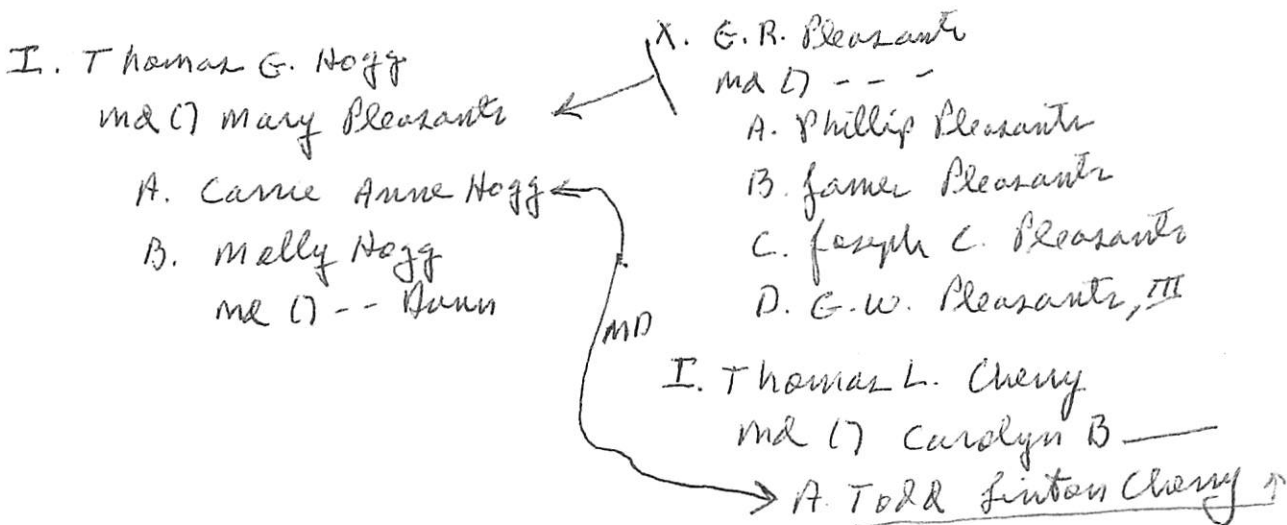 I. Thomas G. Hogg
md () Mary Pleasants
A. Carrie Anne Hogg
B. Molly Hogg
md () -- Dunn
X. G.R. Pleasants
md () - - -
A. Phillip Pleasants
B. James Pleasants
C. Joseph C. Pleasants
D. G.W. Pleasants, III
MD
I. Thomas L. Cherry
md () Carolyn B ——
A. Todd Linton Cherry ↑